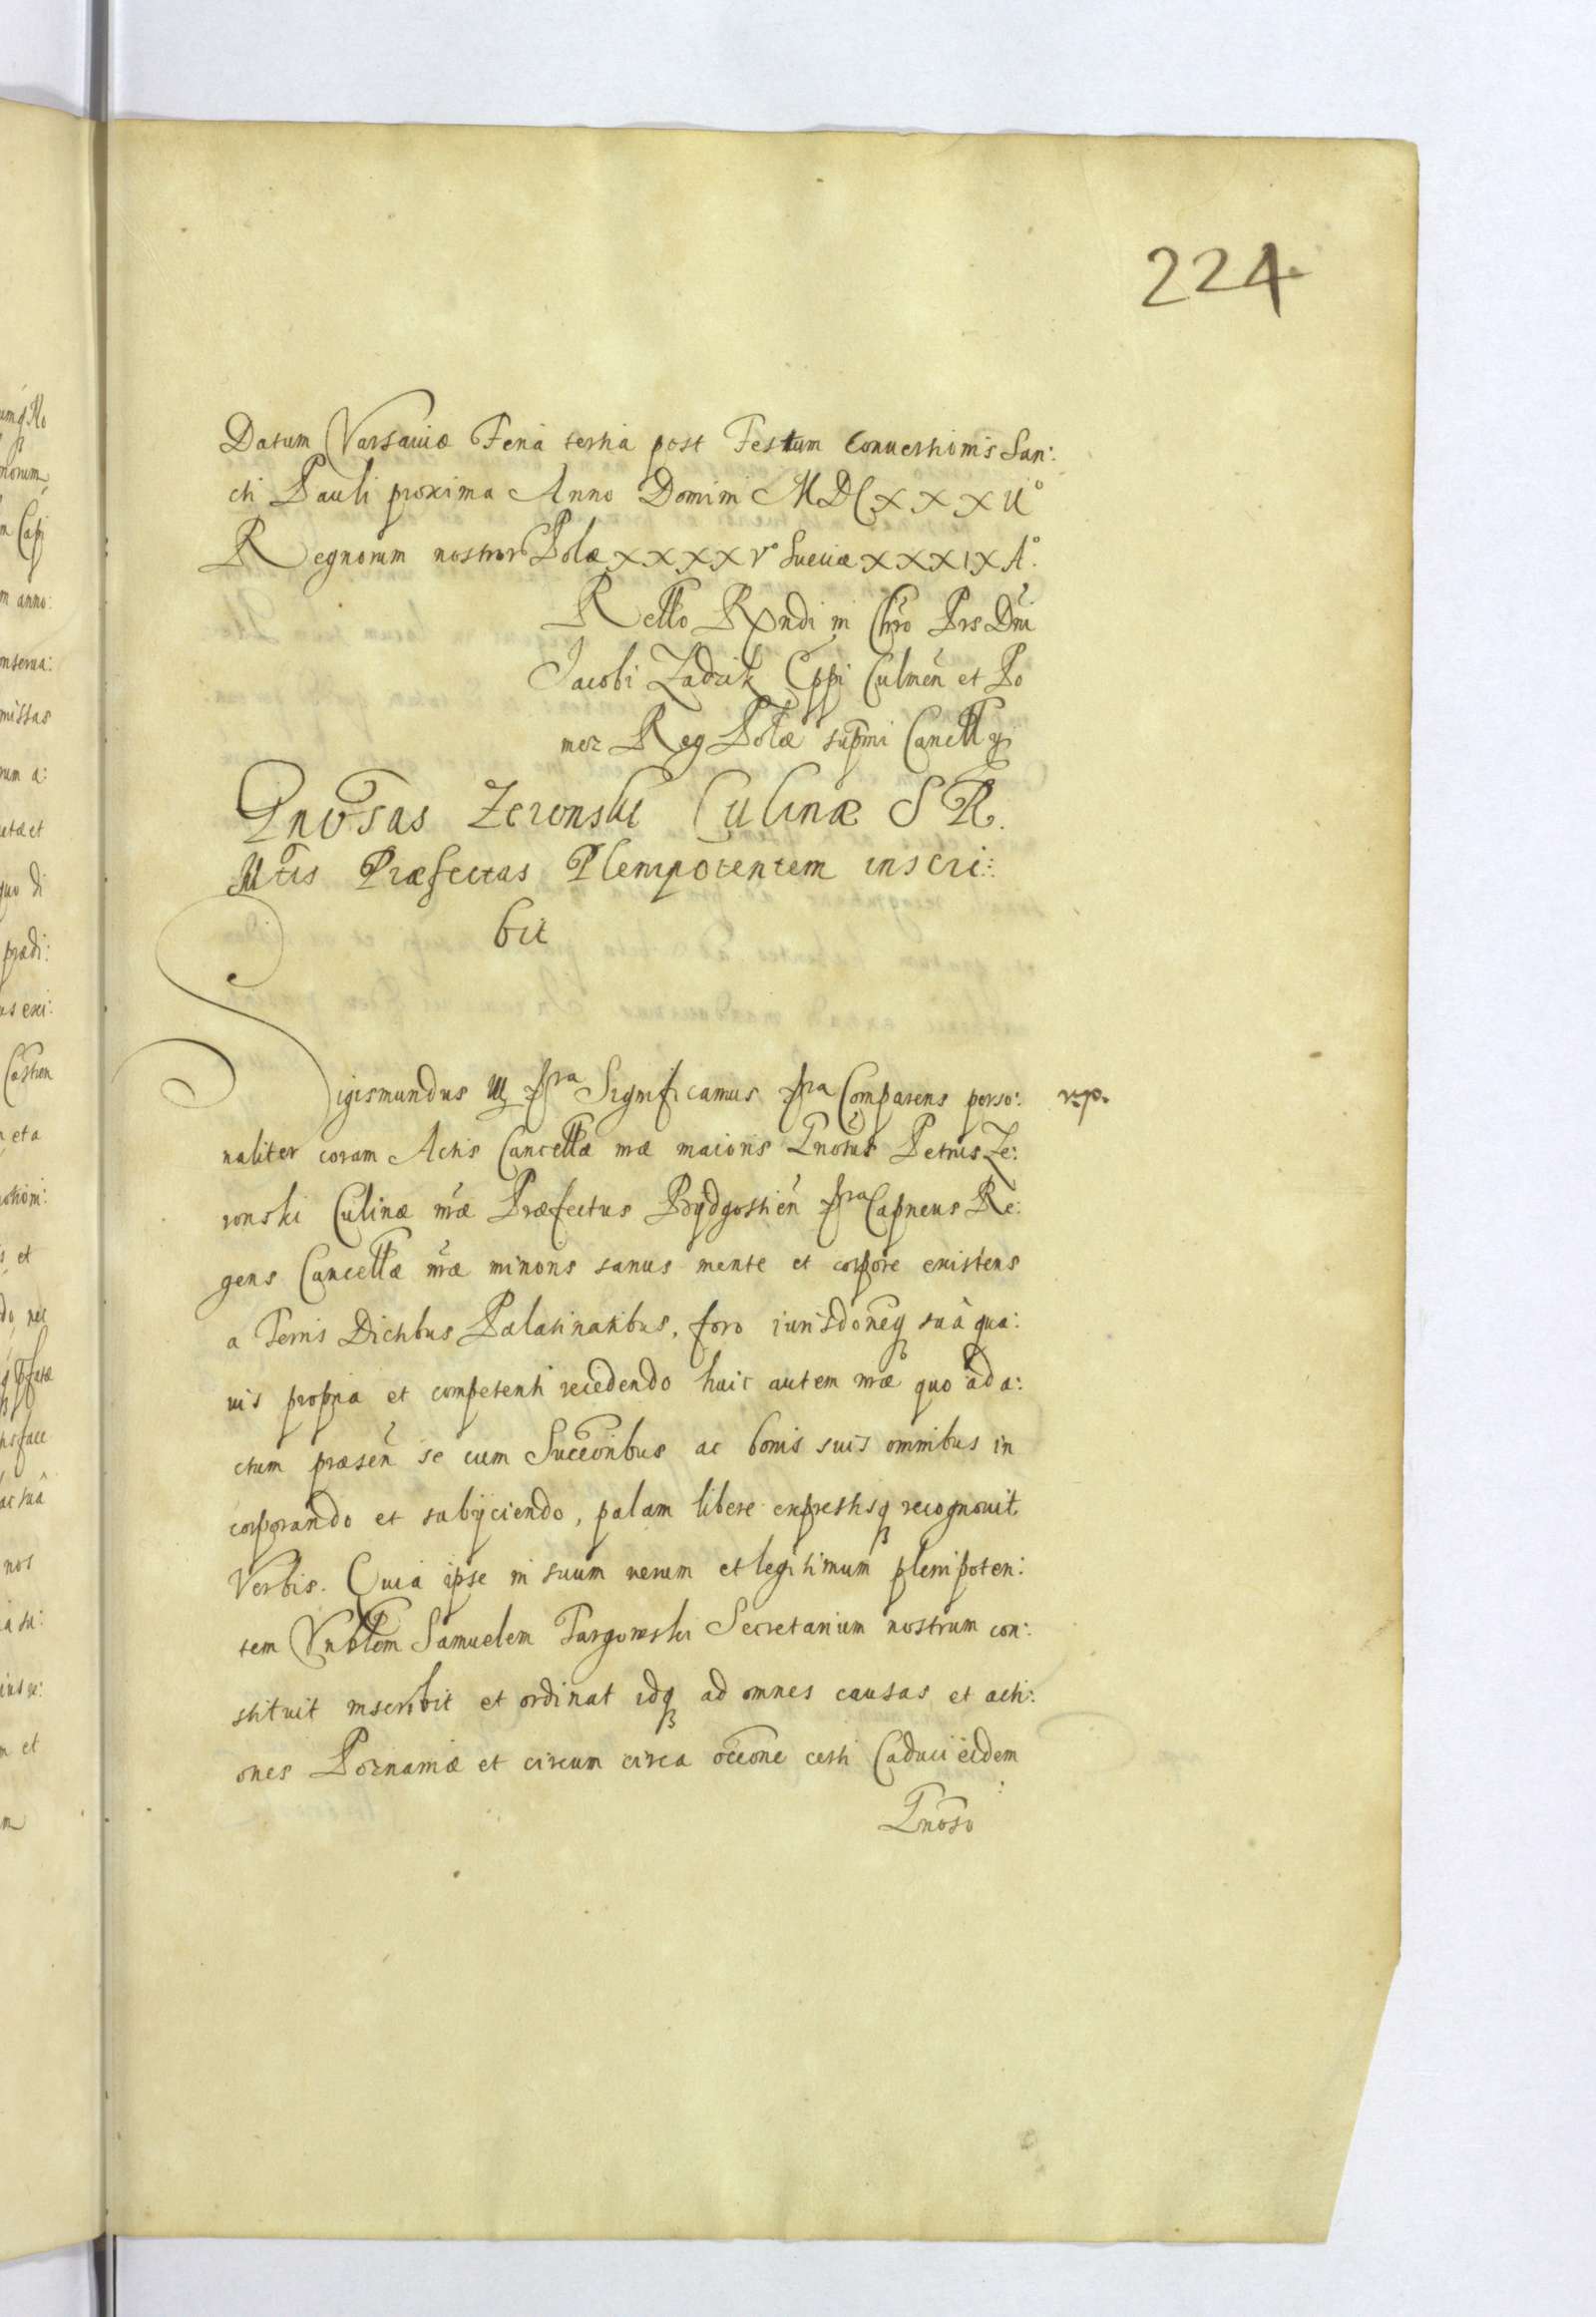 224
Datum Varsauiæ Feria tertia post Festum Conuersionis San:
cti Pauli proxima Anno Domini MDCXXXII°
Regnorum nostror Polæ XXXXV° Sueciæ XXXIX A°.
Rellõ Rndi in Chrõ Prs Dni
Jacobi Zadzik Eppi Culmen̄ et Po
mez Reg Polæ supmi Cancllÿ
Gnosus Zeronski Culinæ S R.
Mtis Præfectus Plenipotentem inscri:
bit
Sigismundus III &ra Significamus &ra Comparens perso: r.p.
naliter coram Actis Cancellæ nræ maioris Gnosus Petrus Ze:
ronski Culinæ nræ Præfectus Bydgostien̄ &ra Capneus Re:
gens Cancellæ nræ minoris sanus mente et corpore existens
a Terris Dictibus Palatinatibus, foro iurisdoneq suâ qua:
uis propria et competenti recedendo huic autem nræ quo ad a:
ctum præsen̄ se cum Succõribus ac bonis suis omnibus in
corporando et subijciendo, palam libere expressisq recognouit
Verbis. Quia ipse in suum verum et legitimum plenipoten:
tem Vnblem Samuelem Targowski Secretarium nostrum con:
stituit inscribit et ordinat idq ad omnes causas et acti:
ones Poznaniæ et circum circa occõne certi Caduci eidem
Gnoso